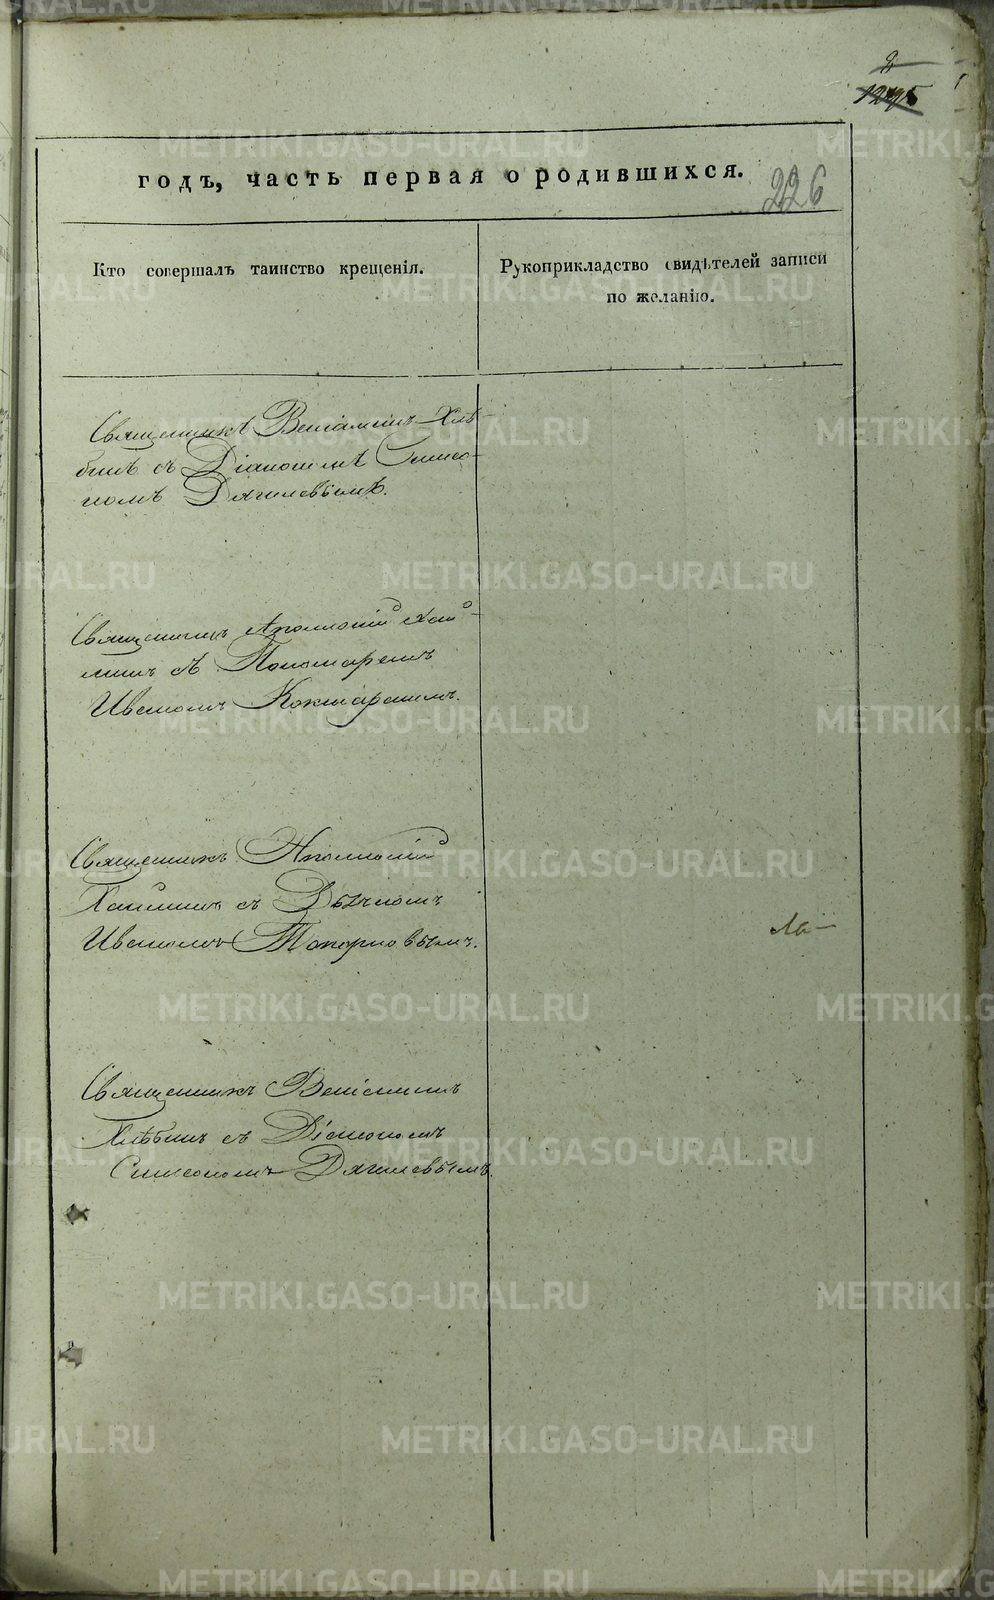 226
годъ, часть первая о родившихся.
Кто совершалъ таинство крещенія.
Рукоприкладство свидѣтелей записи
по желанію.
Священникъ Веніаминъ Хлѣ-
бинъ съ Діакономъ Симео-
номъ Дягилевымъ.
Священникъ Аполлоній Хай-
минъ съ Пономаремъ
Иваномъ Кокшаровымъ.
Священникъ Аполлоній
Хайминъ съ Дьячкомъ
Иваномъ Топорковымъ.
Священникъ Веніаминъ
Хлѣбинъ съ Діакономъ
Симеономъ Дягилевымъ.
METRIKI.GASO-URAL.RU